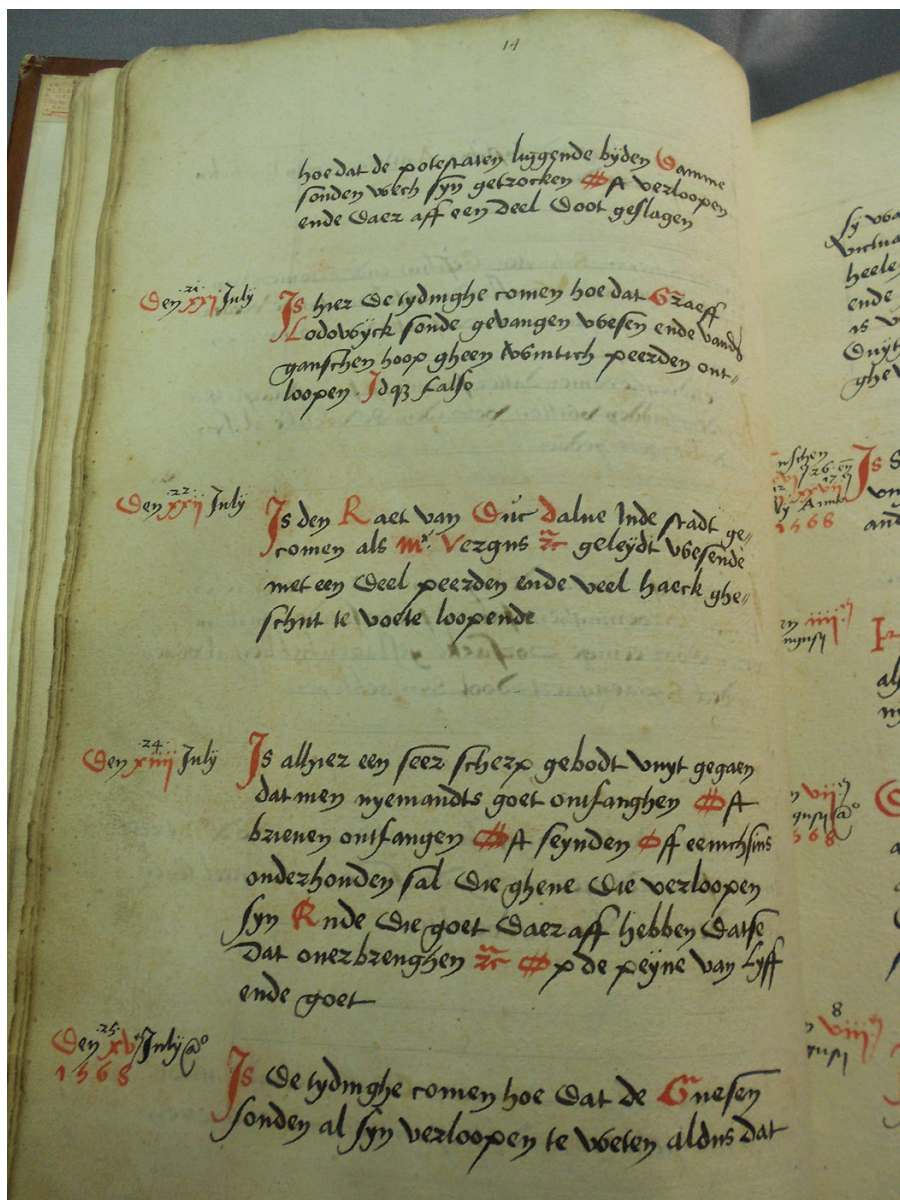 14
hoe dat de potestaten liggende byden Damme
sonden wech syn getrocken Oft verloopen
ende daer aff een deel doot geslagen
21
Den xxj July
Is hier de tydinghe comen hoe dat Graeff
Lodowyck sonde gevangen wesen ende vand
ganschen hoop gheen twintich peerden ont-
loopen. Idqz falso
22
Den xxij July
Is den Raet van Duc dalve Inde stadt ge-
comen als Mr. Vergus rc geleydt wesende
met een deel peerden ende veel haeck ghe-
schut te voete loopende
24
Den xiiij July
Is alhier een seer scherp gebodt vuyt gegaen
dat men nyemandts goet ontfanghen Oft
brieven ontfangen Oft seynden Off eenichsins
onderhouden sal die ghene die verloopen
syn Ende die goet daer aff hebben datse
dat overbrenghen rc Op de peyne van Lyff
ende goet
25
Den xv July ao
1568
Is de tydinghe comen hoe dat de Guesen
sonden al syn verloopen te weten aldus dat
sy
victua
heele
ende
is
ghe
26 en
xxvij
1568
Is
iiij
vij
1568
8
viij